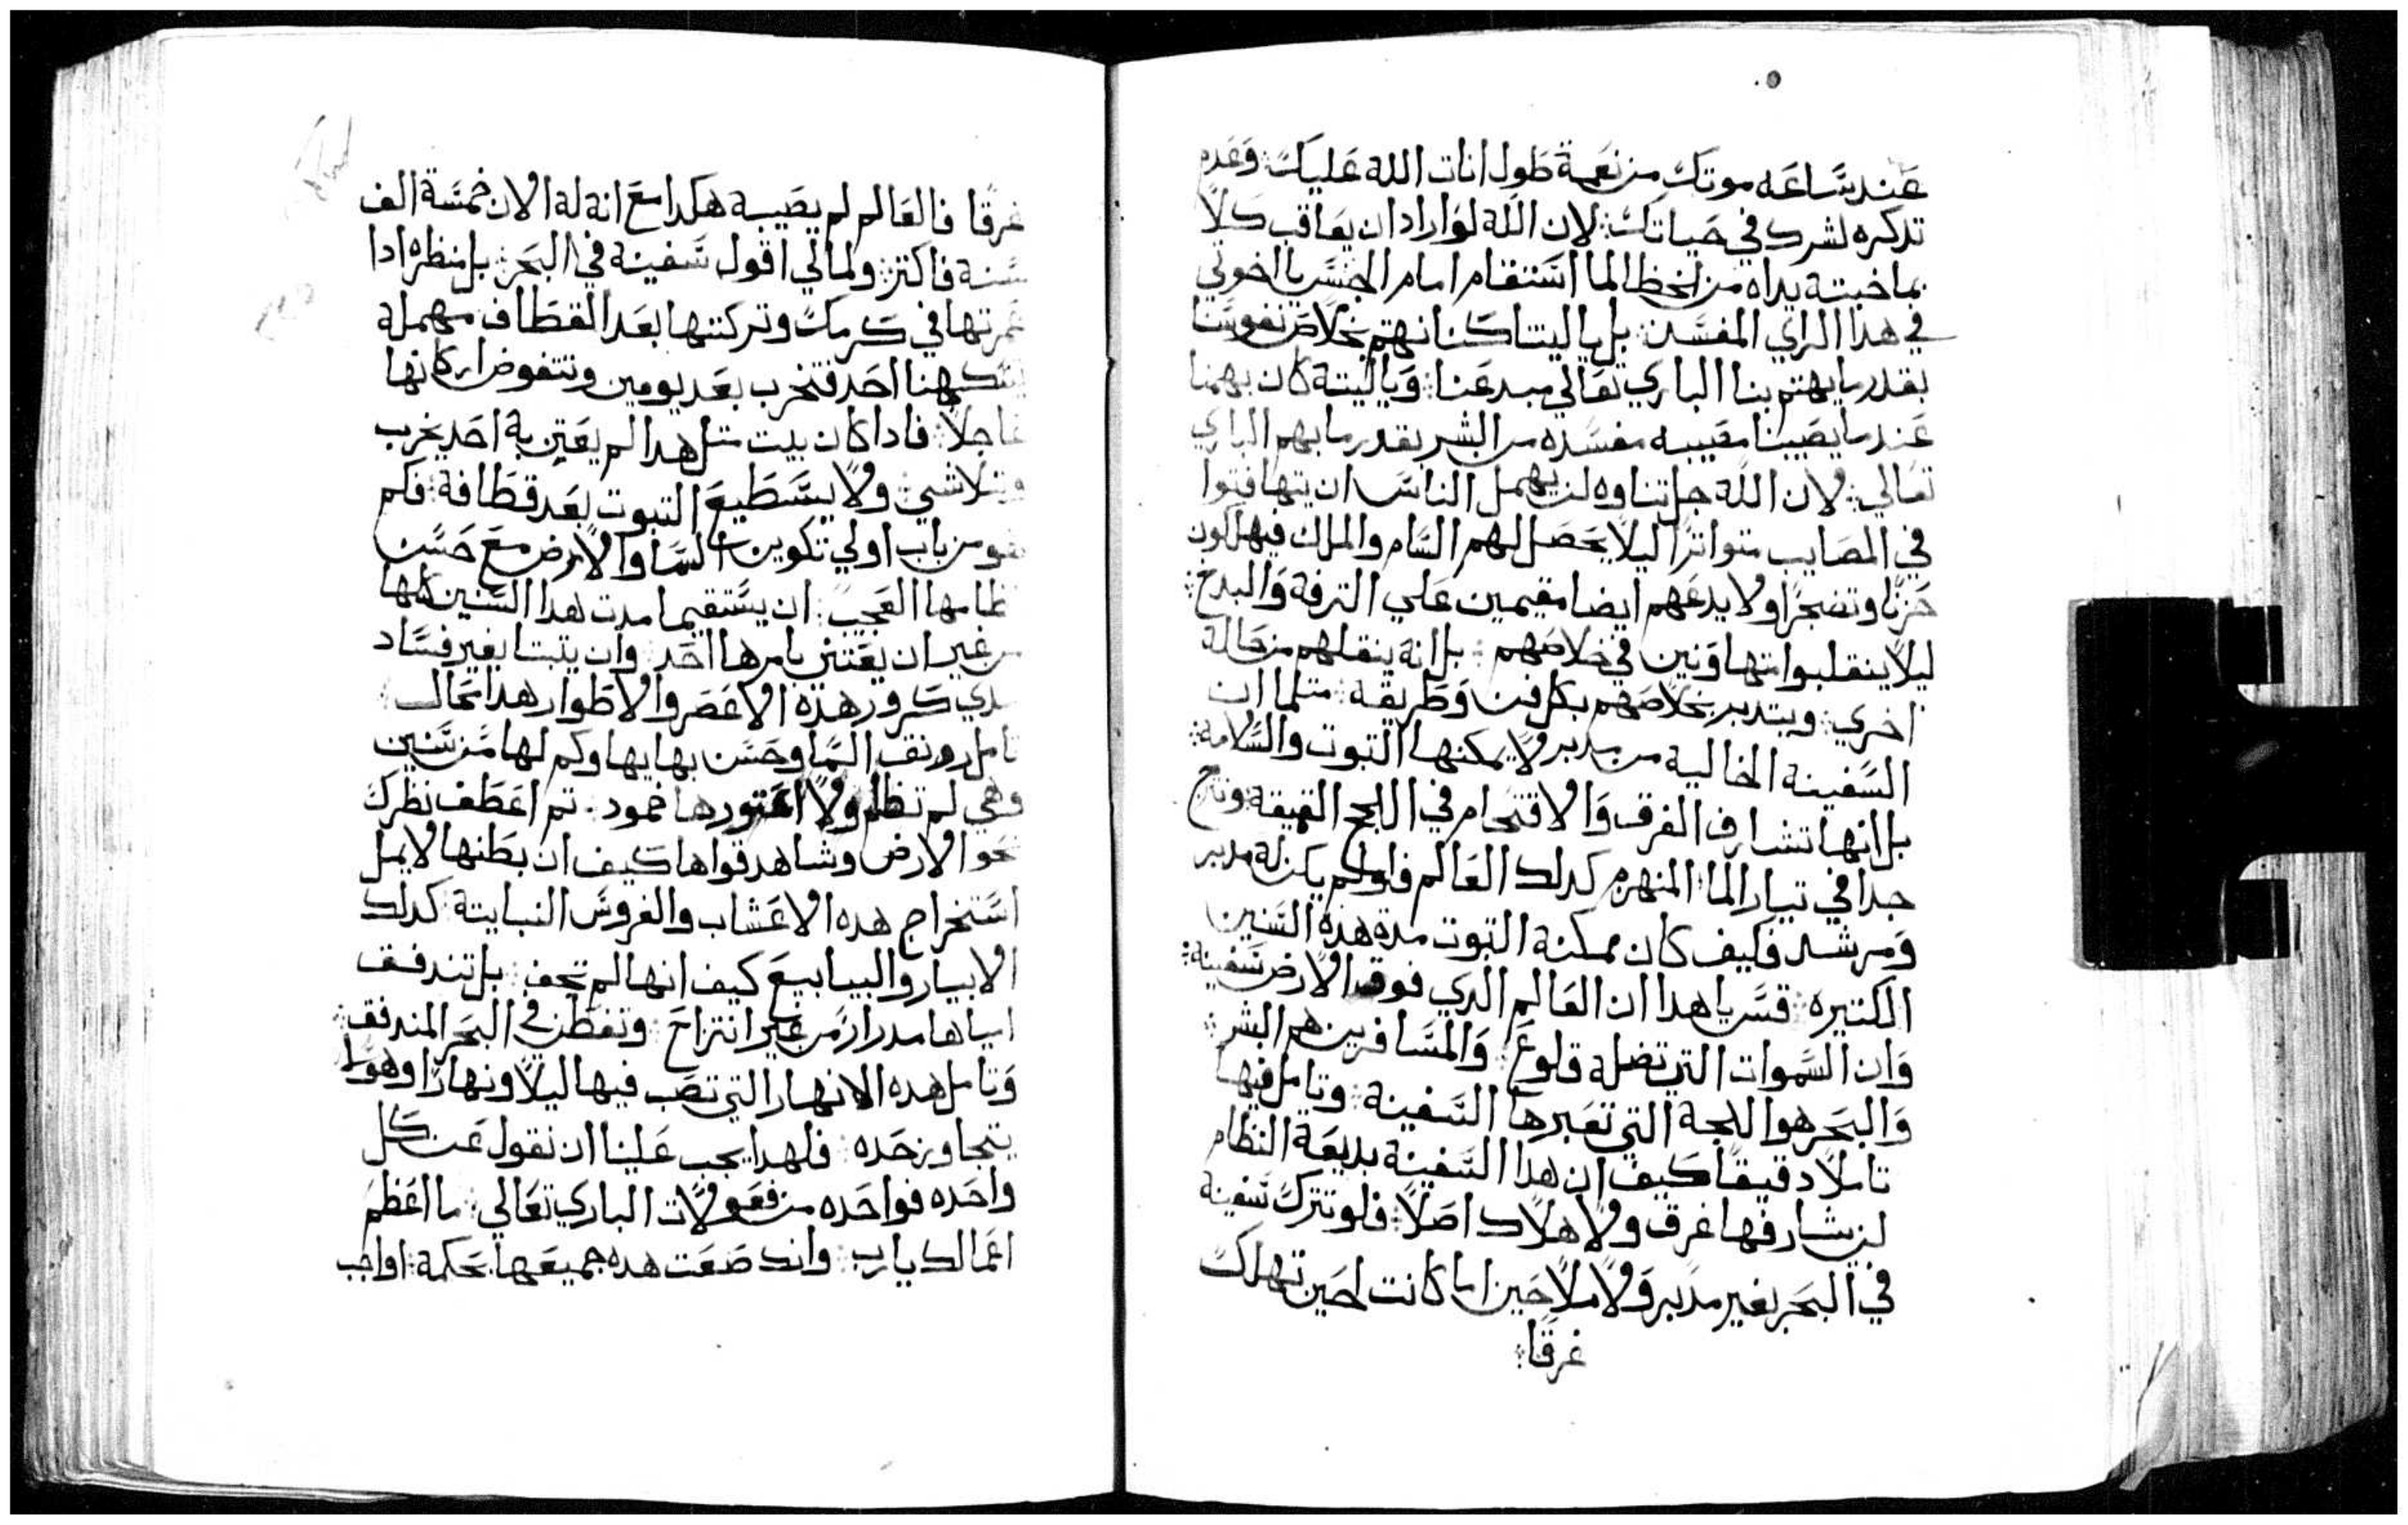 عند ساعه موتك من نعمة طول انات الله عليك وعدم
تدكره لشرك في حياتك لان الله لو اراد ان يعاقب كلاً
بما خبته يداه من الخطا لما استقام امام الجسر يا اخوتي
في هدا الراي المفسد بل يا ليتنا كنا نهتم بخلاص نفوسنا
بقدر ما يهتم بنا الباري تعالي مبدعنا ويا ليته كان يهمنا
عند ما يصيبنا مصيبه مفسده من البشر بقدر ما يهم الباري
تعالي لان الله جل تناوه لن يهمل الناس ان يتهافتوا
في المصايب متواترًا ليلا يحصل لهم السام والملل فيهلكون
حزنًا وتضجرًا ولا يدعهم ايضا مقيمين علي الترفة والبدخ
ليلا ينقلبوا متهاونين في خلاصهم بل انه ينقلهم من حالة
اخري ويتدبر بخلاصهم بكل فن وطريقة متلما ان
السفينة الخالية من مدبر لا يمكنها التبوت والسلامة
بل انها تشارف الغرق والاقتحام في اللجج العميقة وتزج
جدا في تيار الما المنهرم كدلك العالم فلو لم يكن له مدبر
ومرشد فكيف كان يمكنة التبوت مدة هذة السنين
الكتيره قس يا هدا ان العالم الدي فوق الارض سفينة
وان السموات التي تضله قلوع والمسافرين هم البشر
والبحر هو اللجة التي تعبرها السفينة وتامل فيها
تاملاً دقيقًا كيف ان هدا السفينة بديعة النظام
لن يشارفها غرق ولا هلاك اصلاً فلو تترك سفينة
في البحر بغير مدبر ولا ملاحين اما كانت لحين تهلك
غرقًا
غرقًا فالعالم لم يصيبة هكدا مع انه له الان خمسة الف
سنة فاكتر ولمالي اقول سفينة في البحر بل منظره ادا
عمرتها في كرمك وتركتها بعد القطاف مهملة
احد فتخرب بعد يومين وتتفوض اركانها
عاجلاً فادا كان بيت متل هدا لم يعتن به احد يخرب
ويتلاشي ولا يستطيع التبوت بعد قطافة فكم
هو من باب اولي تكوين السما والارض مع حسن
نظامها العجيب ان يستقيما مدت هدا السنين كلها
من غير ان يعتني بامرها احد وان يتبتا بغير فساد
مدي كرور هذه الاعصر والاطوار هدا محال
تامل رونق السما وحسن بهايها وكم لها من سنين
وهي لم تظلم ولا اعتورها خمود تم اعطف نظرك
نحو الارض وشاهد قواها كيف ان بطنها لا يمل
استخراج هده الاعشاب والغروس النباتية كدلك
الابيار والينابيع كيف انها لم تجف بل تندفق
مياها مدرار من غير انتزاح وتفطن في البحر المندفق
وتامل هده الانهار التي تصب فيها ليلاً ونهارًا وهو لم
يتجاوز حده فلهدا يجب علينا ان نقول عن كل
واحده فواحده من مفعولات الباري تعالي ما اعظم
اعمالك يا رب وانك صنعت هده جميعها بحكمة اواجب